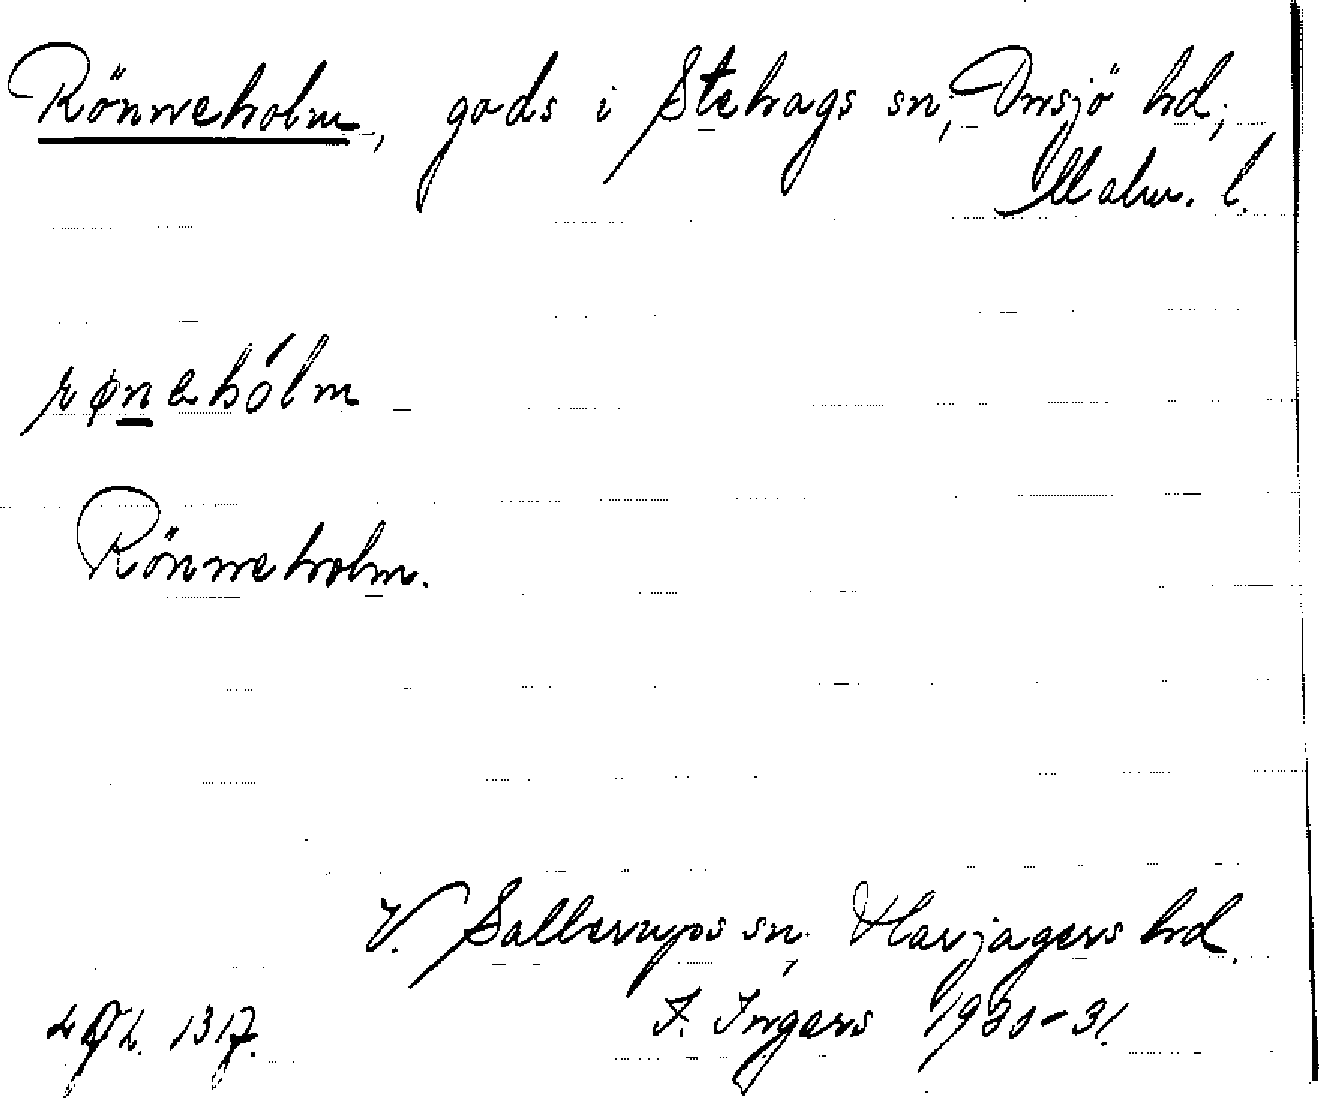 Rönneholm, gods i Stehags sn, Onsjö hd,
Malm. l.
Rönneholm.
V. Sallerups sn, Harjagers hd.
1317. I. Ingers 1930-31.